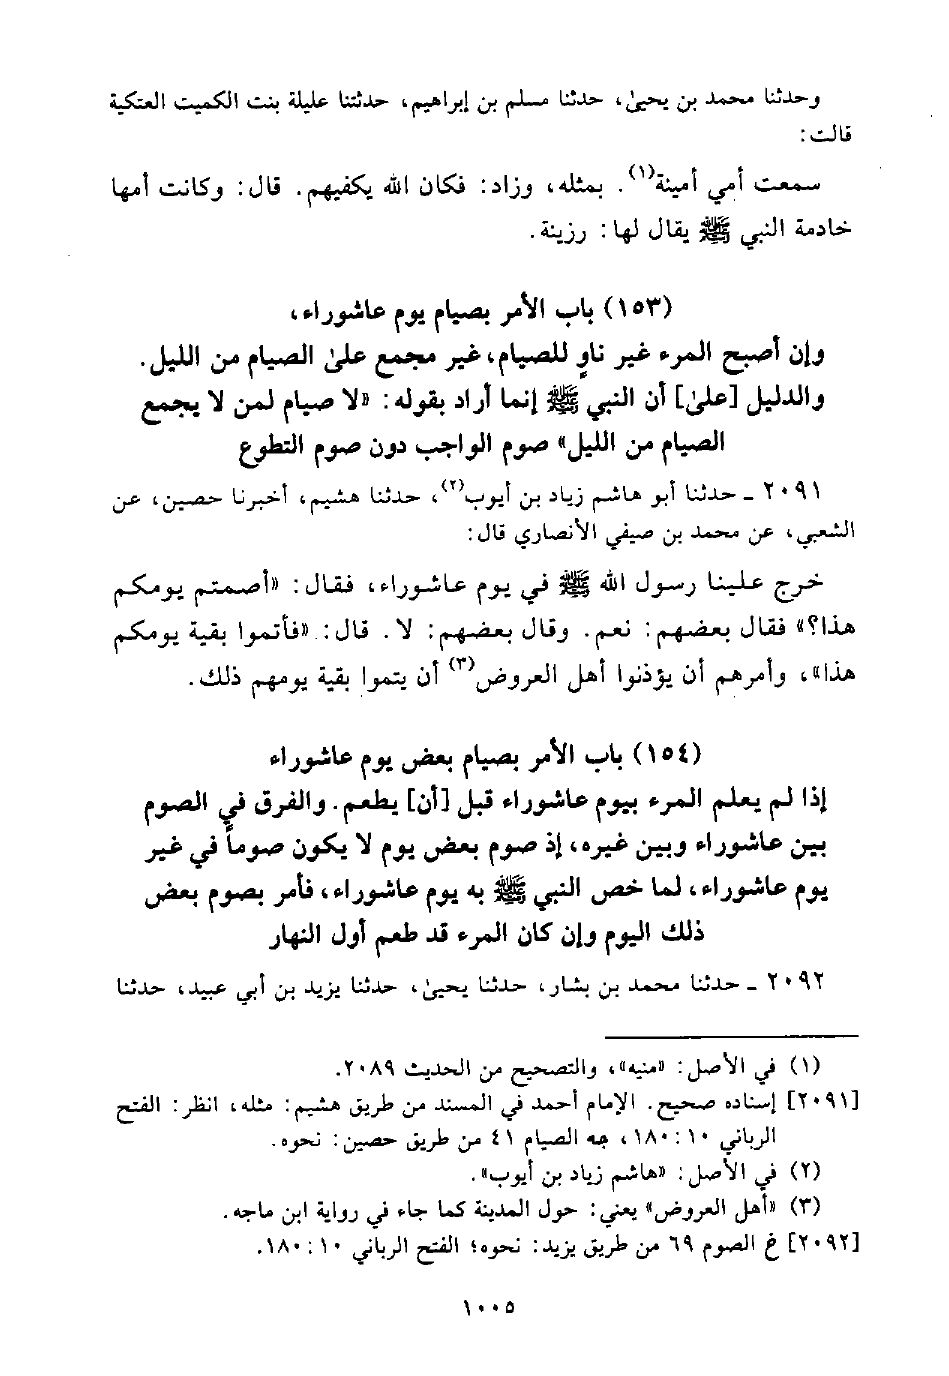 وحدثنا محمد بن يحيىٰ، حدثنا مسلم بن إبراهيم، حدثتنا عليلة بنت الكميت العتكية
قالت:
سمعت أمي أمينة(١). بمثله، وزاد: فكان الله يكفيهم. قال: وكانت أمها
خادمة النبي ﷺ يقال لها: رزينة.
(١٥٣) باب الأمر بصيام يوم عاشوراء،
وإن أصبح المرء غير ناوٍ للصيام، غير مجمع علىٰ الصيام من الليل.
والدليل [علىٰ] أن النبي ﷺ إنما أراد بقوله: «لا صيام لمن لا يجمع
الصيام من الليل» صوم الواجب دون صوم التطوع
٢٠٩١ ـ حدثنا أبو هاشم زياد بن أيوب(٢)، حدثنا هشيم، أخبرنا حصين، عن
الشعبي، عن محمد بن صيفي الأنصاري قال:
خرج علينا رسول الله ﷺ في يوم عاشوراء، فقال: «أصمتم يومكم
هذا؟» فقال بعضهم: نعم. وقال بعضهم: لا. قال: «فأتموا بقية يومكم
هذا»، وأمرهم أن يؤذنوا أهل العروض(٣) أن يتموا بقية يومهم ذلك.
(١٥٤) باب الأمر بصيام بعض يوم عاشوراء
إذا لم يعلم المرء بيوم عاشوراء قبل [أن] يطعم. والفرق في الصوم
بين عاشوراء وبين غيره، إذ صوم بعض يوم لا يكون صوماً في غير
يوم عاشوراء، لما خص النبي ﷺ به يوم عاشوراء، فأمر بصوم بعض
ذلك اليوم وإن كان المرء قد طعم أول النهار
٢٠٩٢ ـ حدثنا محمد بن بشار، حدثنا يحيىٰ، حدثنا يزيد بن أبي عبيد، حدثنا
(١) في الأصل: «منيه»، والتصحيح من الحديث ٢٠٨٩.
[٢٠٩١] إسناده صحيح. الإمام أحمد في المسند من طريق هشيم: مثله، انظر: الفتح
الرباني ١٠: ١٨٠، جه الصيام ٤١ من طريق حصين: نحوه.
(٢) في الأصل: «هاشم زياد بن أيوب».
(٣) «أهل العروض» يعني: حول المدينة كما جاء في رواية ابن ماجه.
[٢٠٩٢] خ الصوم ٦٩ من طريق يزيد: نحوه؛ الفتح الرباني ١٠: ١٨٠.
١٠٠٥